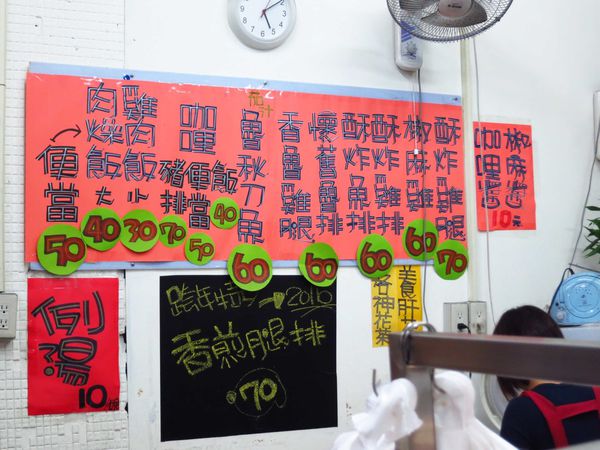 便當
50
肉燥飯
大
40
雞肉飯
小
30
咖哩
豬排
70
便當
50
飯
40
茄汁
魯秋刀魚
60
香魯雞腿
懷舊
排
60
酥炸
排
酥炸雞
60
椒麻雞
60
酥炸雞腿
70
咖哩醬
椒麻醬
10元
例湯
10元
跨年
2016
香煎腿排
70